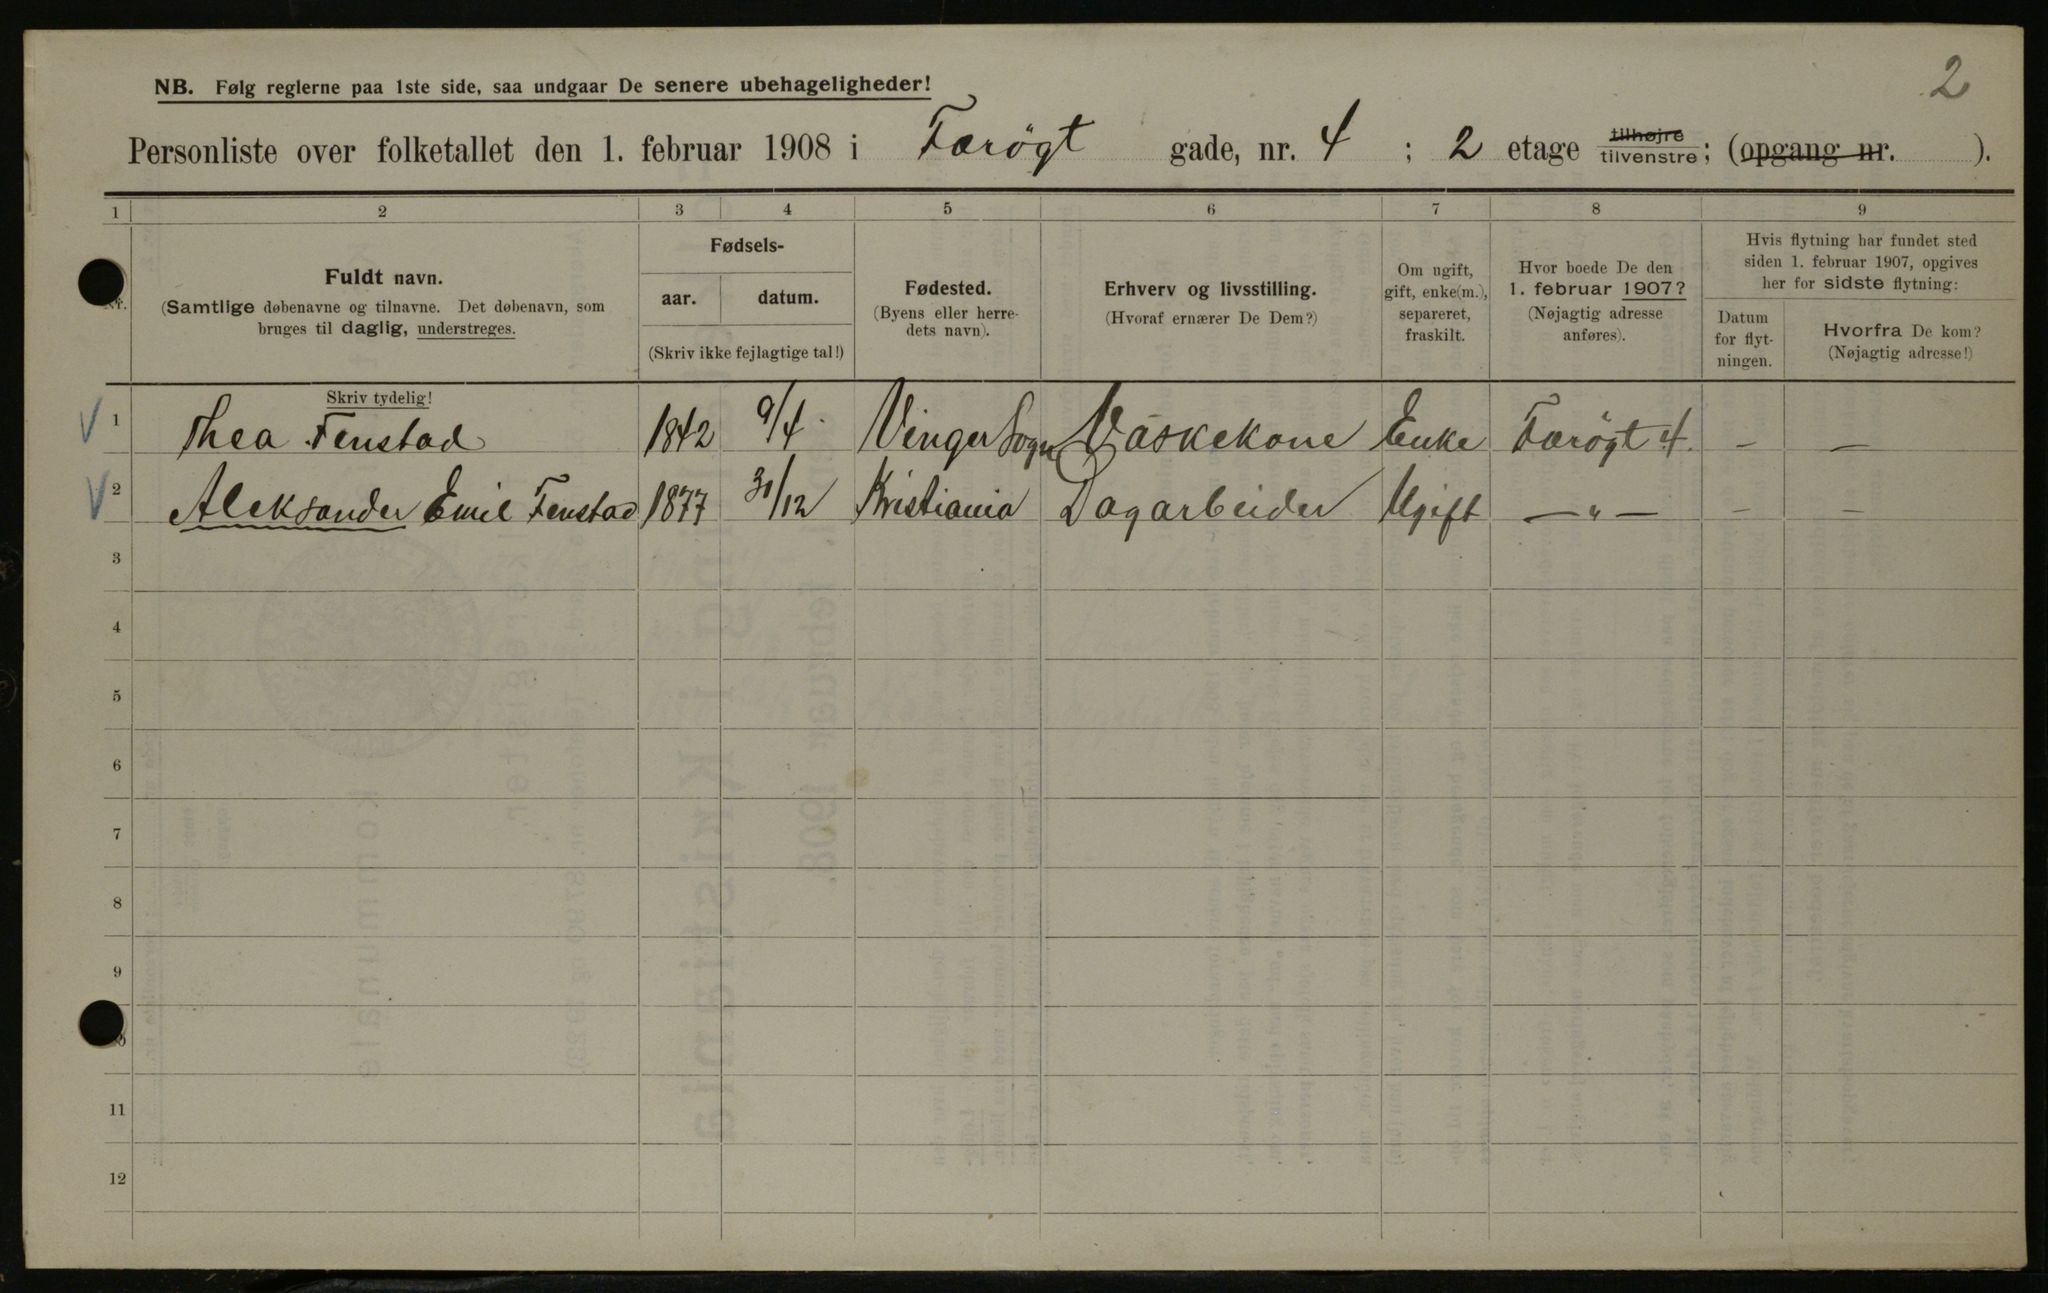 2
NB. Følg reglerne paa 1ste side, saa undgaar De senere ubehageligheder!
Personliste over folketallet den 1. februar 1908 i Færøgt gade, nr. 4 ; 2 etage tilhøjre tilvenstre; (opgang nr. ).
1 2 3 4 5 6 7 8 9
Nr.
Fuldt navn.
(Samtlige døbenavne og tilnavne. Det døbenavn, som
bruges til daglig, understreges.
Skriv tydelig!
Fødsels-
aar. datum.
(Skriv ikke fejlagtige tal!)
Fødested.
(Byens eller herre-
dets navn).
Erhverv og livsstilling.
(Hvoraf ernærer De Dem?)
Om ugift,
gift, enke(m.),
separeret,
fraskilt.
Hvor boede De den
1. februar 1907?
(Nøjagtig adresse
anføres).
Hvis flytning har fundet sted
siden 1. februar 1907, opgives
her for sidste flytning:
Datum
for flyt-
ningen.
Hvorfra De kom?
(Nøjagtig adresse!)
1 Thea Fenstad 1842 9/4 Vinger Sogn Vaskekone Enke Færøgt 4. – –
2 Aleksander Emil Fenstad 1877 31/12 Kristiania Dagarbeider Ugift — " — – –
3
4
5
6
7
8
9
10
11
12